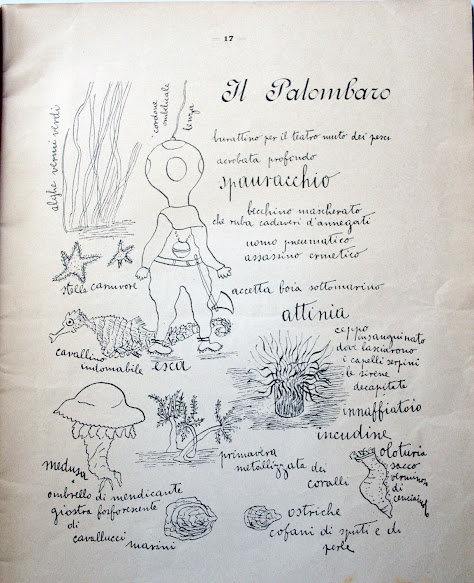 — 17 —
Il Palombaro
cordone
ombellicale
lenza
alghe vermi verdi
burattino per il teatro muto dei pesci
acrobata profondo
spauracchio
becchino mascherato
che ruba cadaveri d'annegati
uomo pneumatico
assassino ermetico
stelle carnivore
accetta boia sottomarino
attinia
ceppo
insanguinato
dove lasciarono
i capelli serpini
le sirene
decapitate
cavallino
indomabile
esca
innaffiatoio
incudine
primavera
metallizzata dei
coralli
oloturia
sacco
verminoso
di
medusa
ombrello di mendicante
giostra fosforescente
di
cavallucci
marini
ostriche
cofani di sputi e di
perle